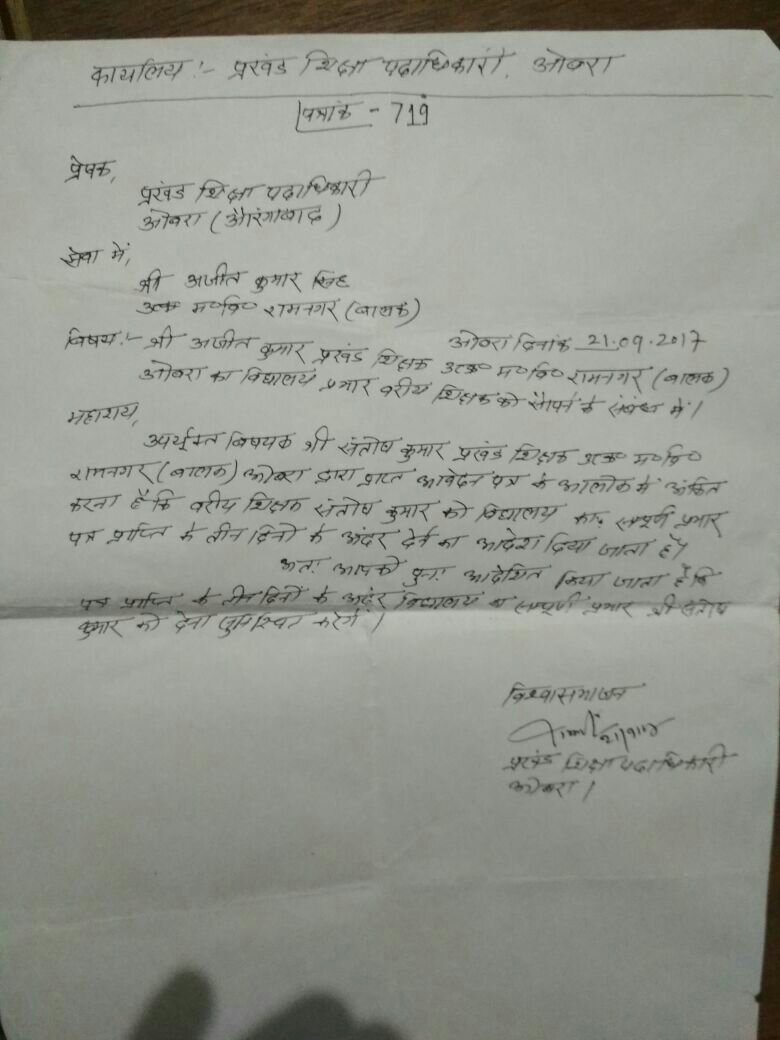 कार्यालय :- प्रखंड शिक्षा पदाधिकारी, ओबरा
पत्रांक - 719
प्रेषक,
प्रखंड शिक्षा पदाधिकारी
ओबरा (औरंगाबाद)
सेवा में,
श्री अजीत कुमार सिंह
उत्क्र० म०वि० रामनगर (बालक)
ओबरा दिनांक 21.09.2017
विषय :- श्री अजीत कुमार प्रखंड शिक्षक उत्क्र० म०वि० रामनगर (बालक)
ओबरा का विद्यालय प्रभार वरीय शिक्षक को सौंपने के संबंध में।
महाशय,
उपर्युक्त विषयक श्री संतोष कुमार प्रखंड शिक्षक उत्क्र० म०वि०
रामनगर (बालक) ओबरा द्वारा प्राप्त आवेदन पत्र के आलोक में अंकित
करना है कि वरीय शिक्षक संतोष कुमार को विद्यालय का सम्पूर्ण प्रभार
पत्र प्राप्ति के तीन दिनों के अंदर देने का आदेश दिया जाता है।
अतः आपको पुनः आदेशित किया जाता है कि
पत्र प्राप्ति के तीन दिनों के अंदर विद्यालय का सम्पूर्ण प्रभार श्री संतोष
कुमार को देना सुनिश्चित करेंगे।
विश्वासभाजन
प्रखंड शिक्षा पदाधिकारी
ओबरा।